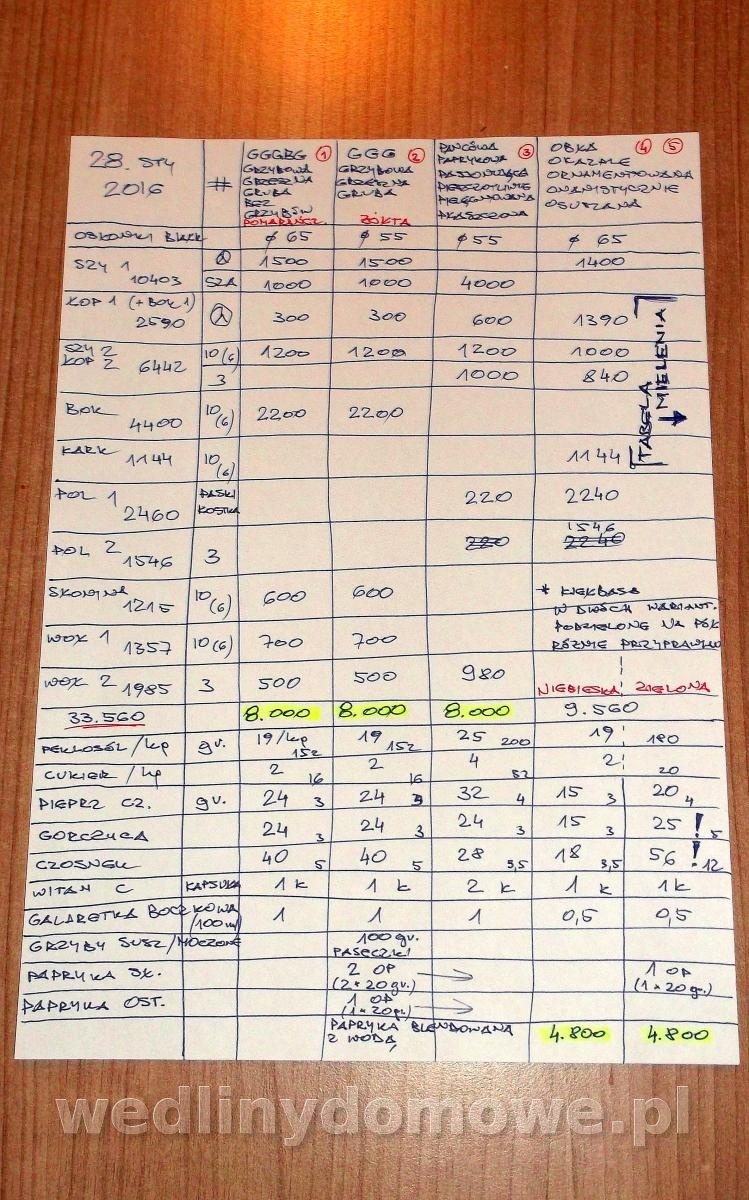 28. STY 2016 # GGGBG 1 GGG 2 3 OBKA 4 5
GRZYBOWA GRZYBOWA PAPRYKOWA OKAZALE
GRZECZNA GRZECZNA ORNAMENTOWANA
GRUBA GRUBA ONANISTYCZNIE
BEZ PIELĘGNOWANA OSUSZANA
GRZYBÓW
POMARAŃCZ. ŻÓŁTA
OSŁONKI ø 65 ø 55 ø 55 ø 65
SZY 1 10403 1500 1500 1400
SZA 1000 1000 4000
KOP 1 (+BOK 1) 2590 300 300 600 1390
SZY 2 KOP 2 6442 10(6) 1200 1200 1200 1000
3 1000 840
TABELA MIELENIA
BOK 4400 10(6) 2200 2200
KARK 1144 10(6) 1144
POL 1 2460 PASKI KOSTKA 220 2240
POL 2 1546 3 220 2240 1546
SKOWINA 1215 10(6) 600 600
* KIEŁBASA
W DWÓCH WARIANT.
PODZIELONE NA PÓŁ
RÓŻNIE PRZYPRAWIO
WOŁ 1 1357 10(6) 700 700
WOŁ 2 1985 3 500 500 980 NIEBIESKA ZIELONA
33.560 8.000 8.000 8.000 9.560
PEKLOSÓL/kg gr. 19/kg 152 19 152 25 200 19 180
CUKIER/kg 2 16 2 16 4 32 2 20
PIEPRZ CZ. gr. 24 3 24 3 32 4 15 3 20 4
GORCZYCA 24 3 24 3 24 3 15 3 25 ! 5
CZOSNEK 40 5 40 5 28 3,5 18 3,5 56 ! 12
WITAM C KAPSUŁKA 1 k 1 k 2 k 1 k 1k
GALARETKA BOCZKOWA (100ml) 1 1 1 0,5 0,5
GRZYBY SUSZ/MOCZONE 100 gr. PASECZKI
PAPRYKA SŁ. 2 OP (2*20gr.) → 1 OP (1*20gr.)
PAPRYKA OST. 1 OP (1*20gr.) →
PAPRYKA BLENDOWANA Z WODĄ 4.800 4.800
wedlinydomowe.pl